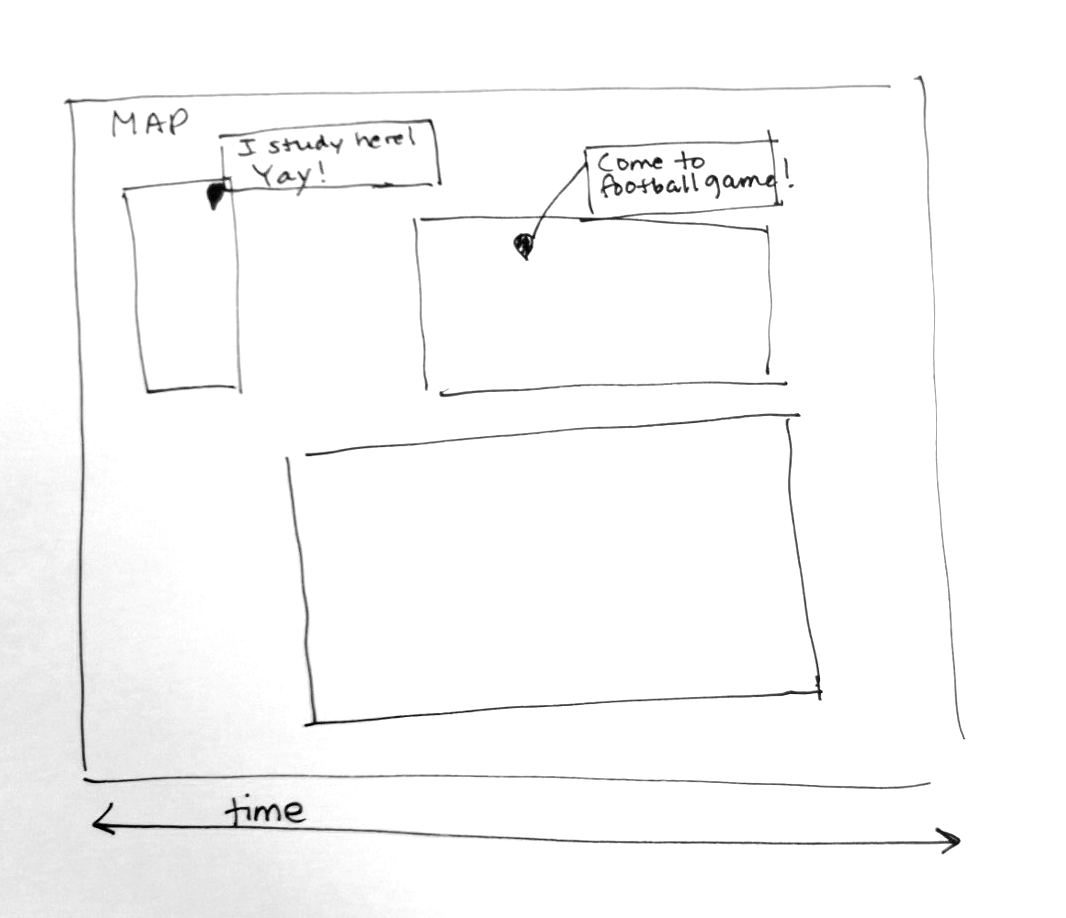 MAP
I study here!
Yay!
Come to
football game!
time